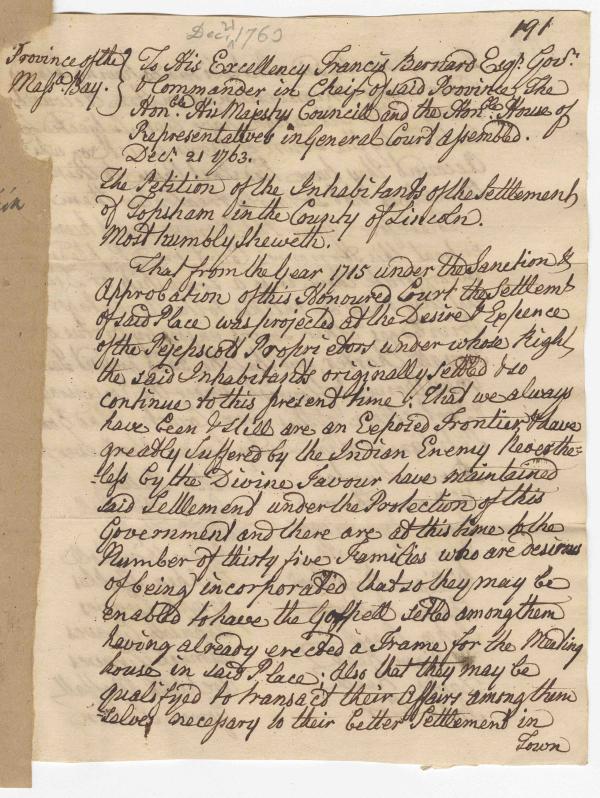 Decr 21 1763
191
Province of the } To His Excellency Francis Bernard Esqr. Govr.
Massa. Bay. } & Commander in Cheif of said Province, The
Honble His Majestys Council and the Honble House of
Representatives in General Court assembled.
Decr. 21 1763.
The Petition of the Inhabitants of the Settlement
of Topsham in the County of Lincoln.
Most humbly Sheweth.
That from the Year 1715 under the Sanction &
Approbation of this Honoured Court the Settlemt
of said Place was projected at the Desire & Expence
of the Pejepscott Proprietors under whose Right
the said Inhabitants originally settled & so
continue to this present time; That we always
have been & still are an Exposed Frontier & have
greatly suffered by the Indian Enemy Neverthe=
=less by the Divine Favour have maintained
said Settlement under the Protection of this
Government and there are at this time to the
Number of thirty five Families who are desirous
of being incorporated that so they may be
enabled to have the Gospell settled among them
having already erected a Frame for the Meeting
house in said Place; Also that they may be
qualifyed to transact their Affairs among them
selves necessary to their better Settlement in
Town